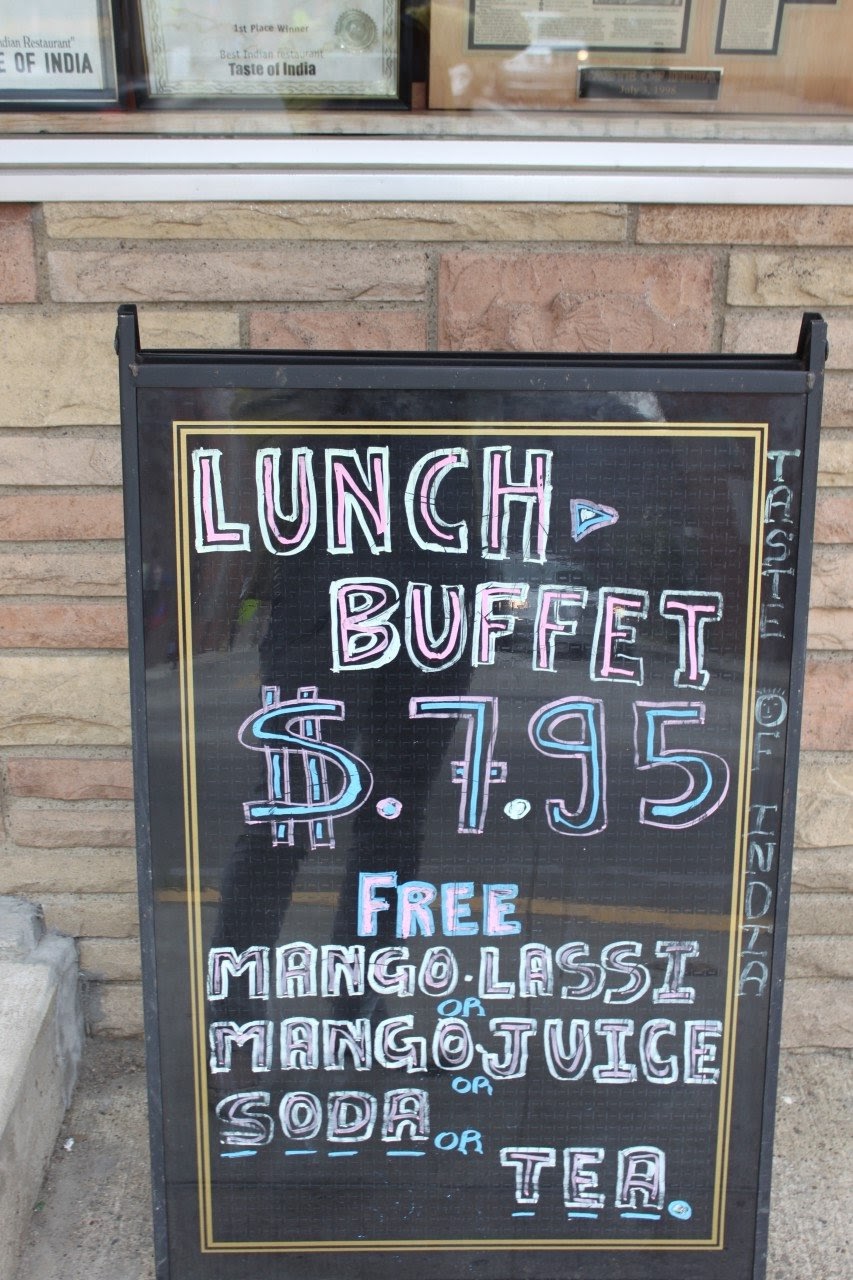 ndian Restaurant"
E OF INDIA
1st Place Winner
Best Indian restaurant
Taste of India
TASTE OF INDIA
July 3, 1998
LUNCH
BUFFET
$.7.95
FREE
MANGO.LASSI
OR
MANGO.JUICE
OR
SODA OR
TEA.
TASTE OF INDIA